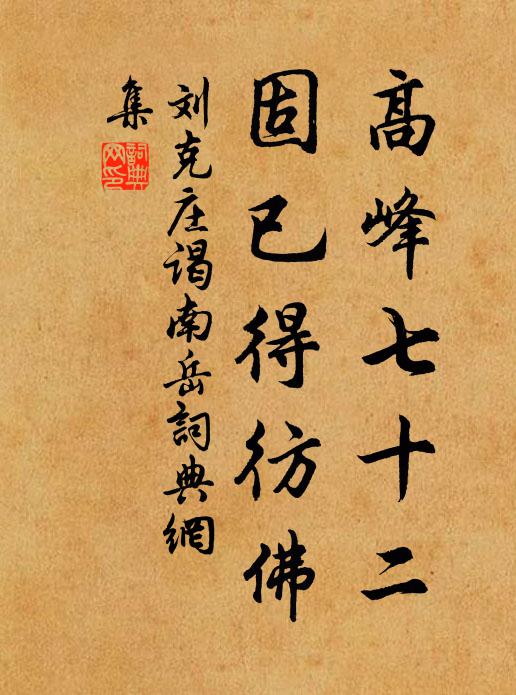 高峰七十二
固已得彷佛
刘克庄谒南岳詞典網
集
詞典
网印